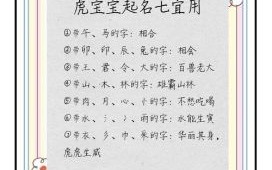 虎宝宝起名七宜用
①带午、马的字：相合
②带卯、卯、辰、兔的字：相会
③带王、君、令、大的字：百兽老大
④带山、木、林的字：雄霸山林
⑤带肉、月、心、忄的字：不愁吃喝
⑥带水、氵、冫、雨的字：水能生寅
⑦带衣、彡、巾、采的字：华丽其身，
虎虎生威